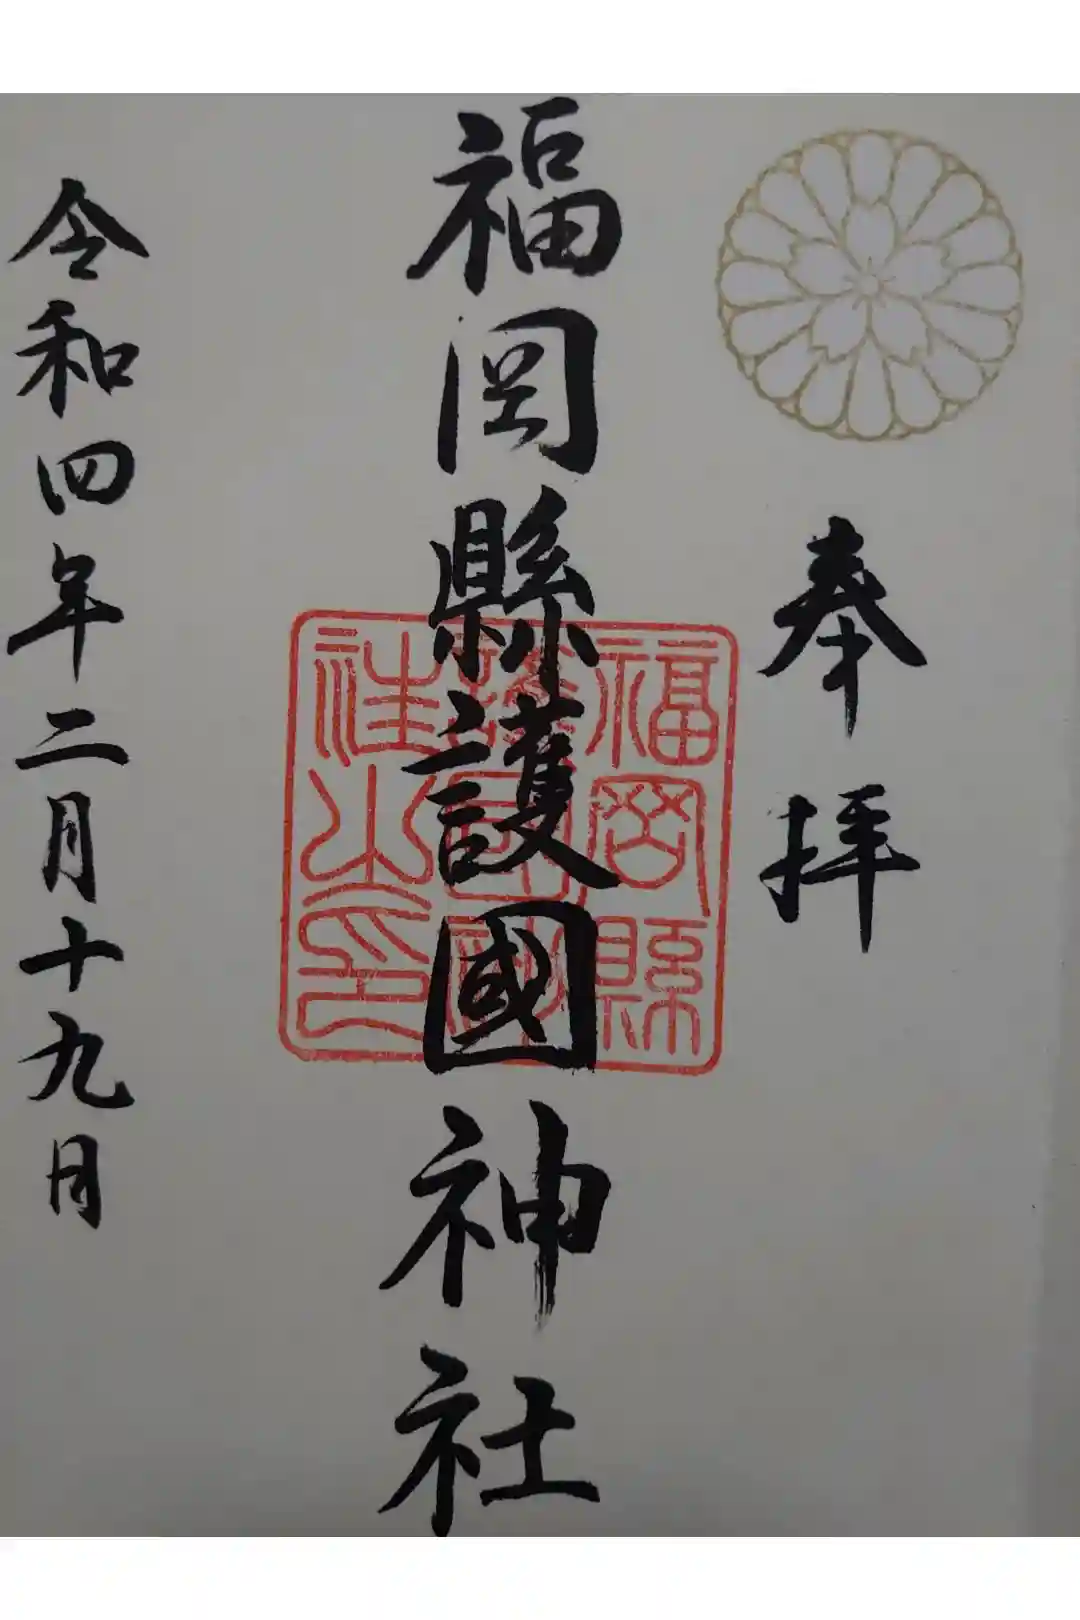 奉拝
福岡縣護國神社
福岡縣
護國神
社之印
令和四年二月十九日